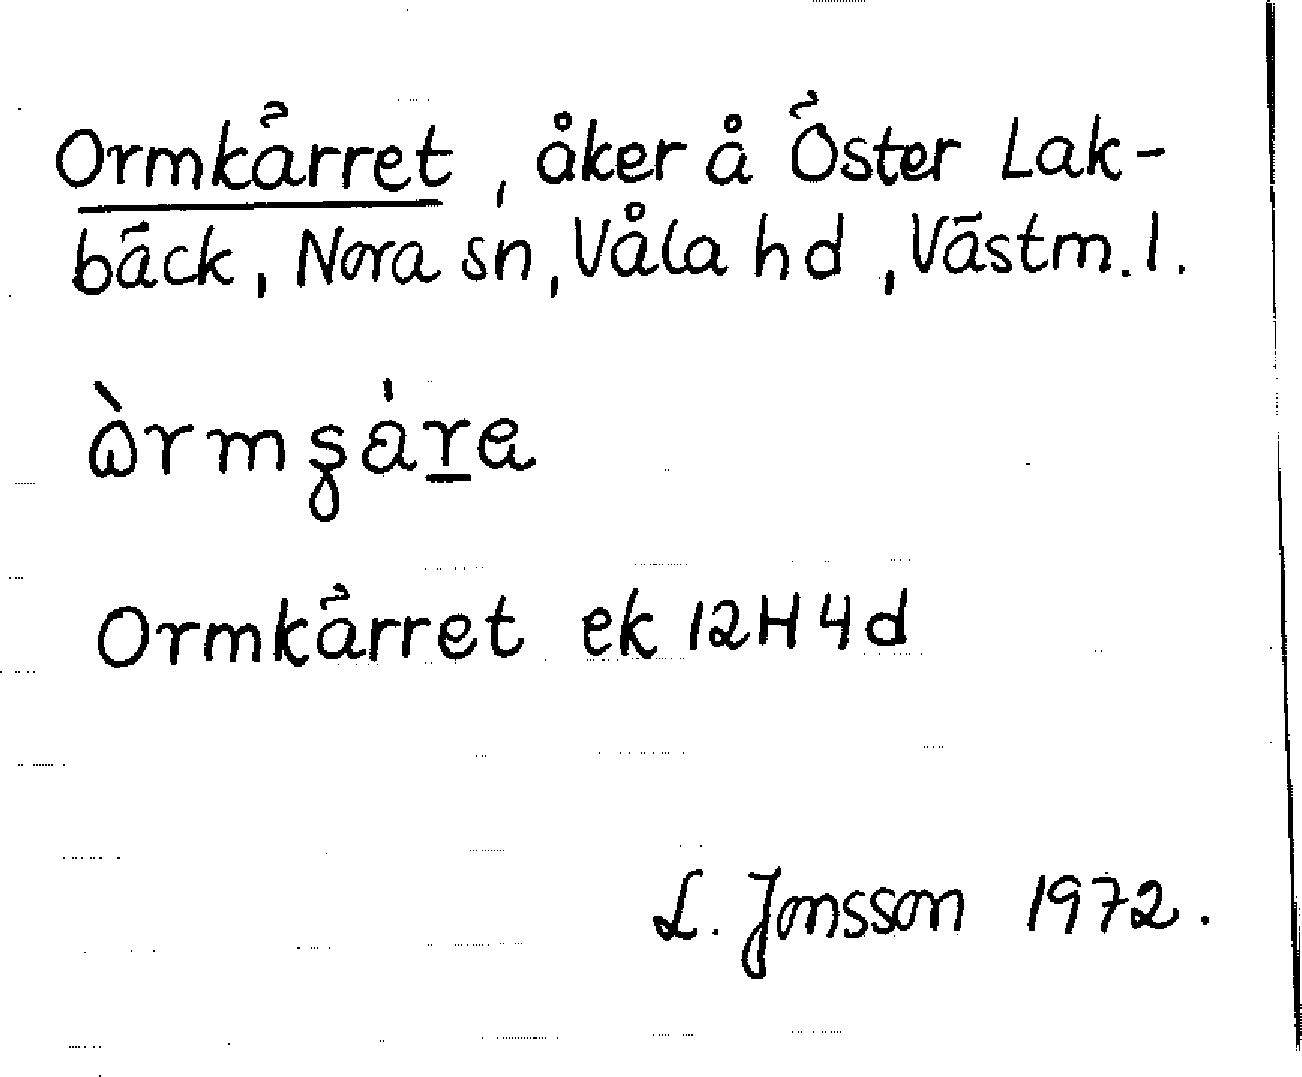 Ormkärret, åker å Öster Lak-
bäck, Nora sn, Våla hd, Västm. l.
Ormkärret ek 12H4d
L. Jonsson 1972.